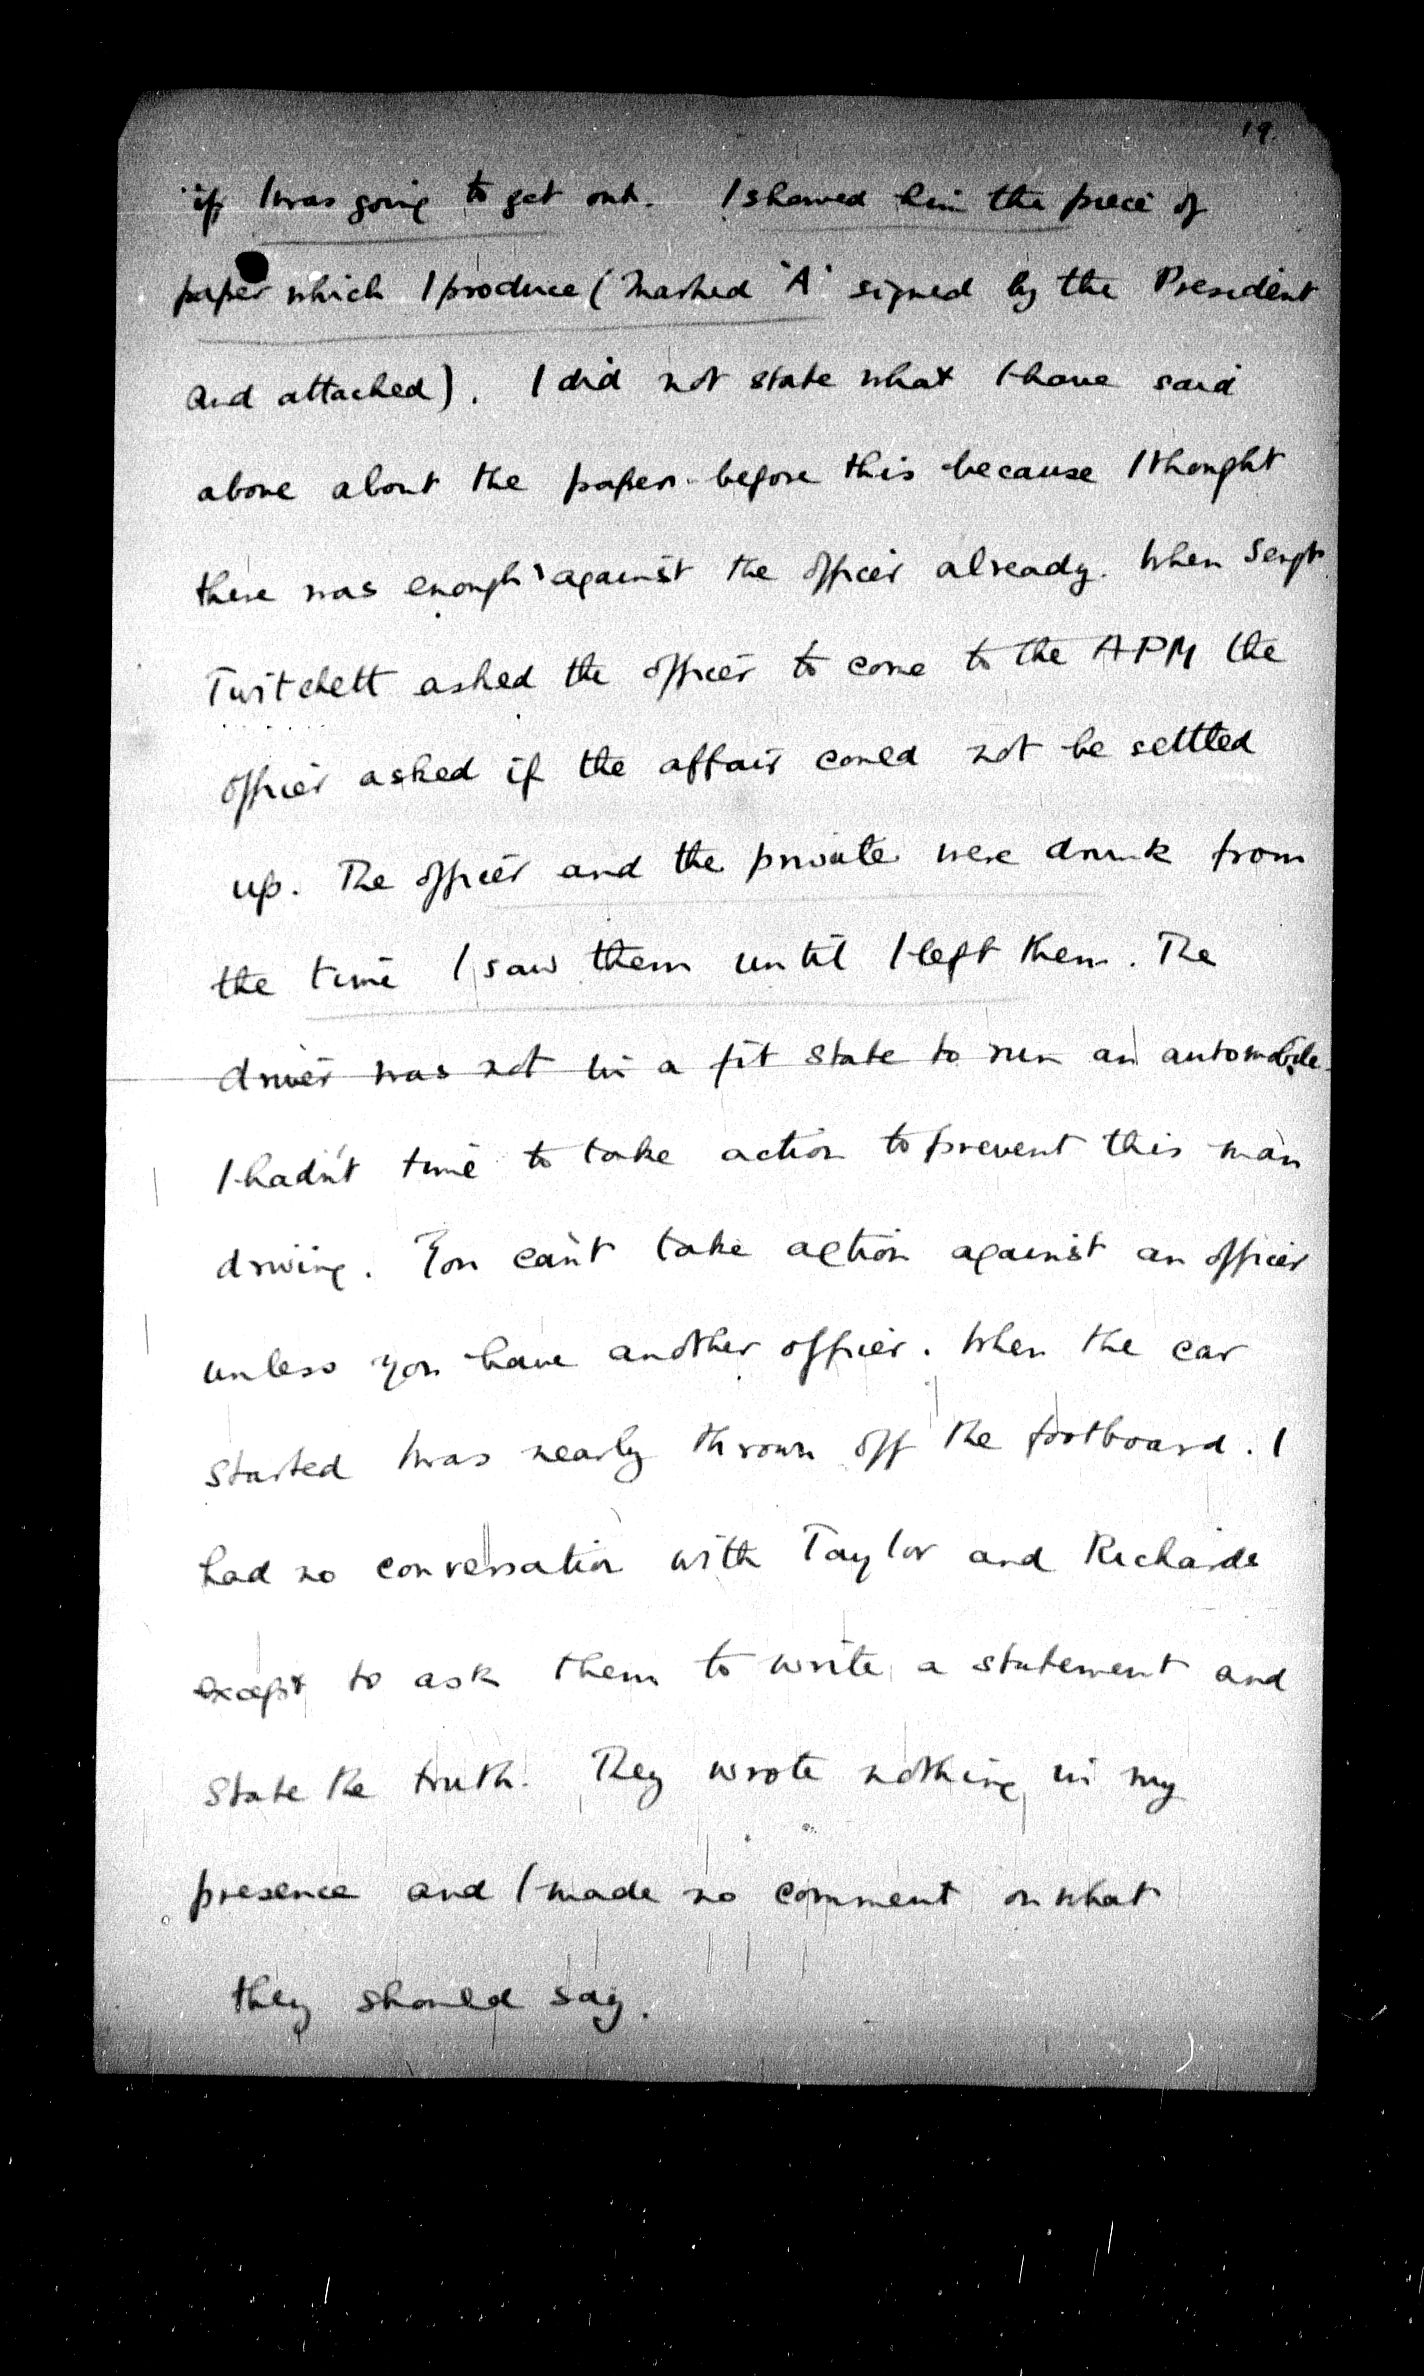 19.
if I was going to get out. I showed him the piece of
paper which I produce (Marked 'A' signed by the President
and attached). I did not state what I have said
above about the paper before this because I thought
there was enough against the officer already. When Sergt
Twitchett asked the officer to come to the APM the
officer asked if the affair could not be settled
up. The officer and the private were drunk from
the time I saw them until I left them. The
driver was not in a fit state to run an automobile.
I hadn't time to take action to prevent this man
driving. You can't take action against an officer
unless you have another officer. When the car
started I was nearly thrown off the footboard. I
had no conversation with Taylor and Richards
except to ask them to write a statement and
state the truth. They wrote nothing in my
presence and I made no comment on what
they should say.